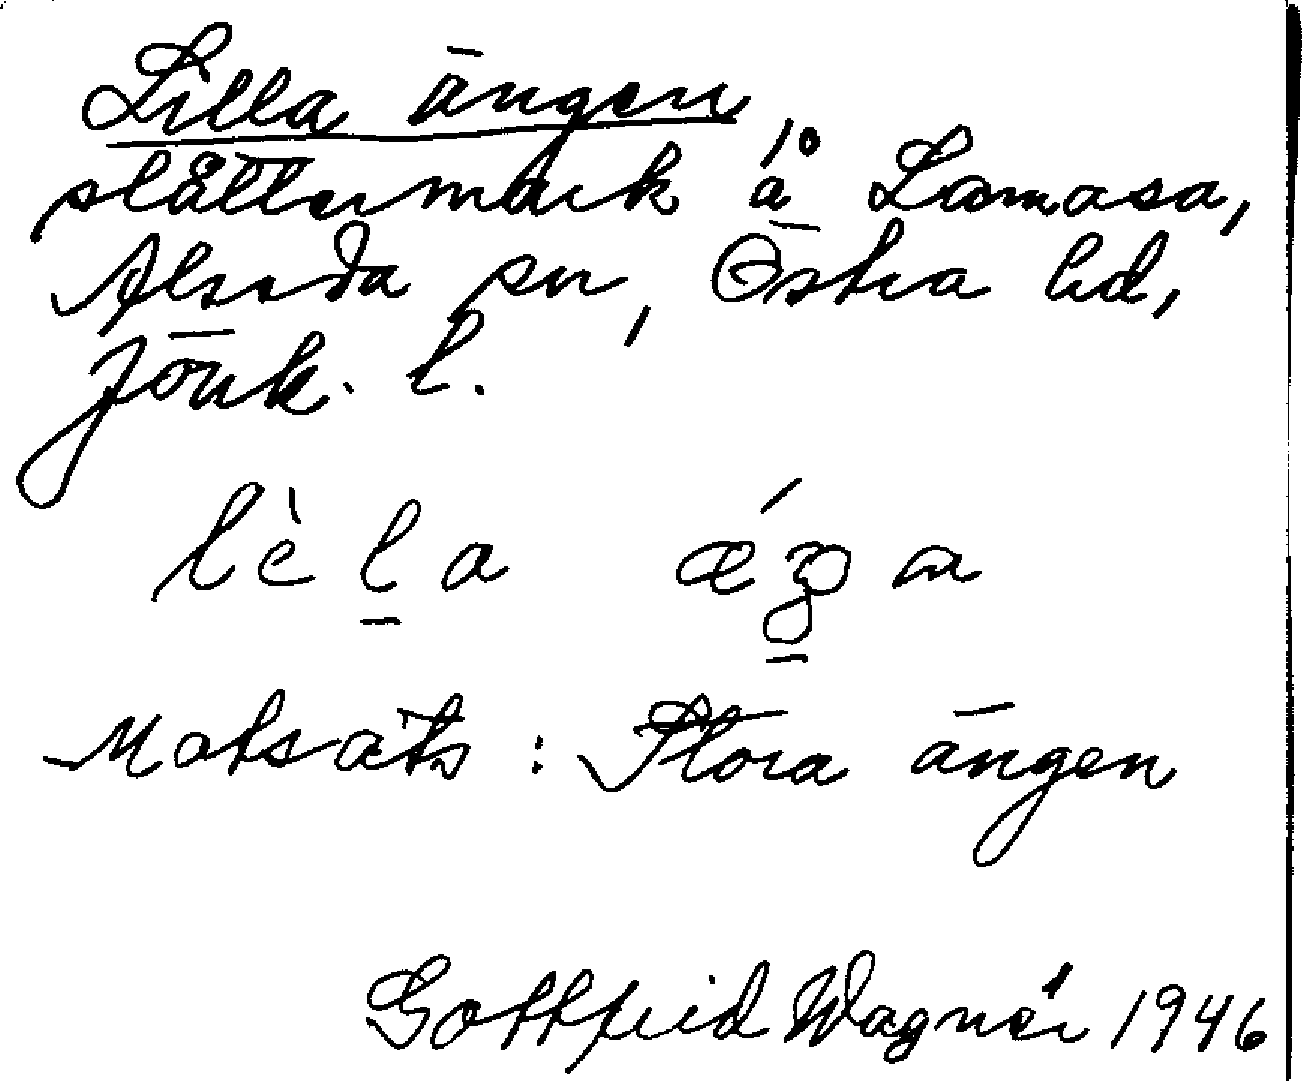 Lilla ängen
slåttermark å Lamåsa,
Alseda sn, Östra hd,
Jönk. l.
lèḻa ǽŋ̱a
Motsats: Stora ängen
Gottfrid Wagnér 1946